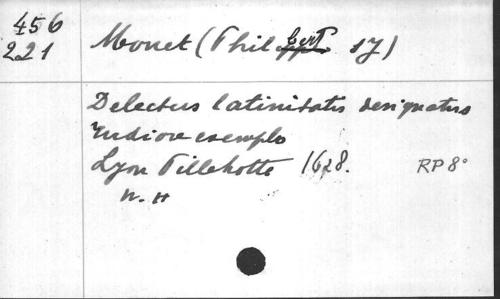 456
221
Monet (Philbert SJ)
Delectus latinitatis designatus
rudiore exemplo
Lyon Pillehotte 1628. RP 8°
n. H